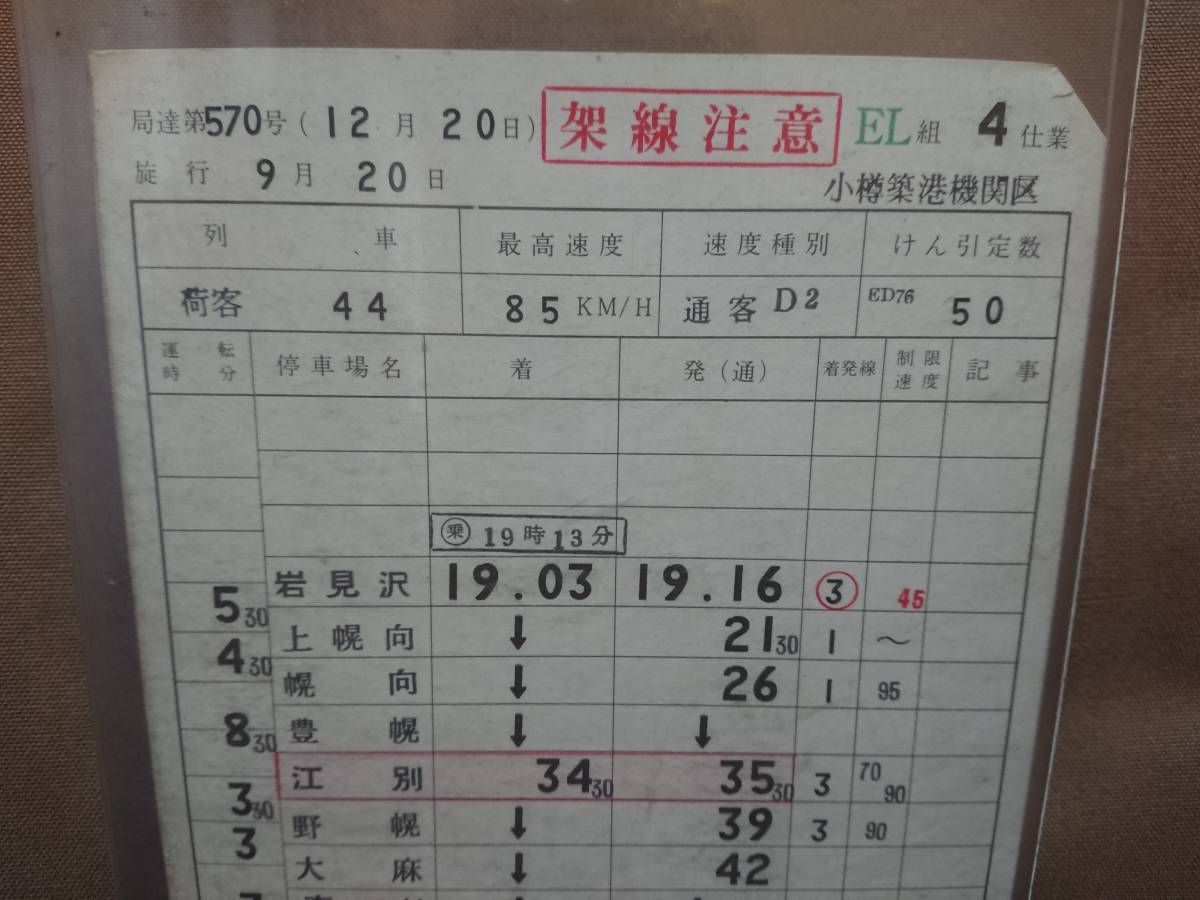 局達第570号(12月20日) 架線注意 EL組 4仕業
施行 9月 20日 小樽築港機関区
列 車 最高速度 速度種別 けん引定数
荷客 44 85 KM/H 通客 D2 ED76 50
運転時分 停車場名 着 発(通) 着発線 制限速度 記事
㊋乗 19時13分
岩見沢 19.03 19.16 ③ 45
5 30
上幌向 ↓ 21 30 1 〜
4 30
幌向 ↓ 26 1 95
8 30
豊幌 ↓ ↓
江別 34 30 35 30 3 70 90
3 30
野幌 ↓ 39 3 90
3
大麻 ↓ 42